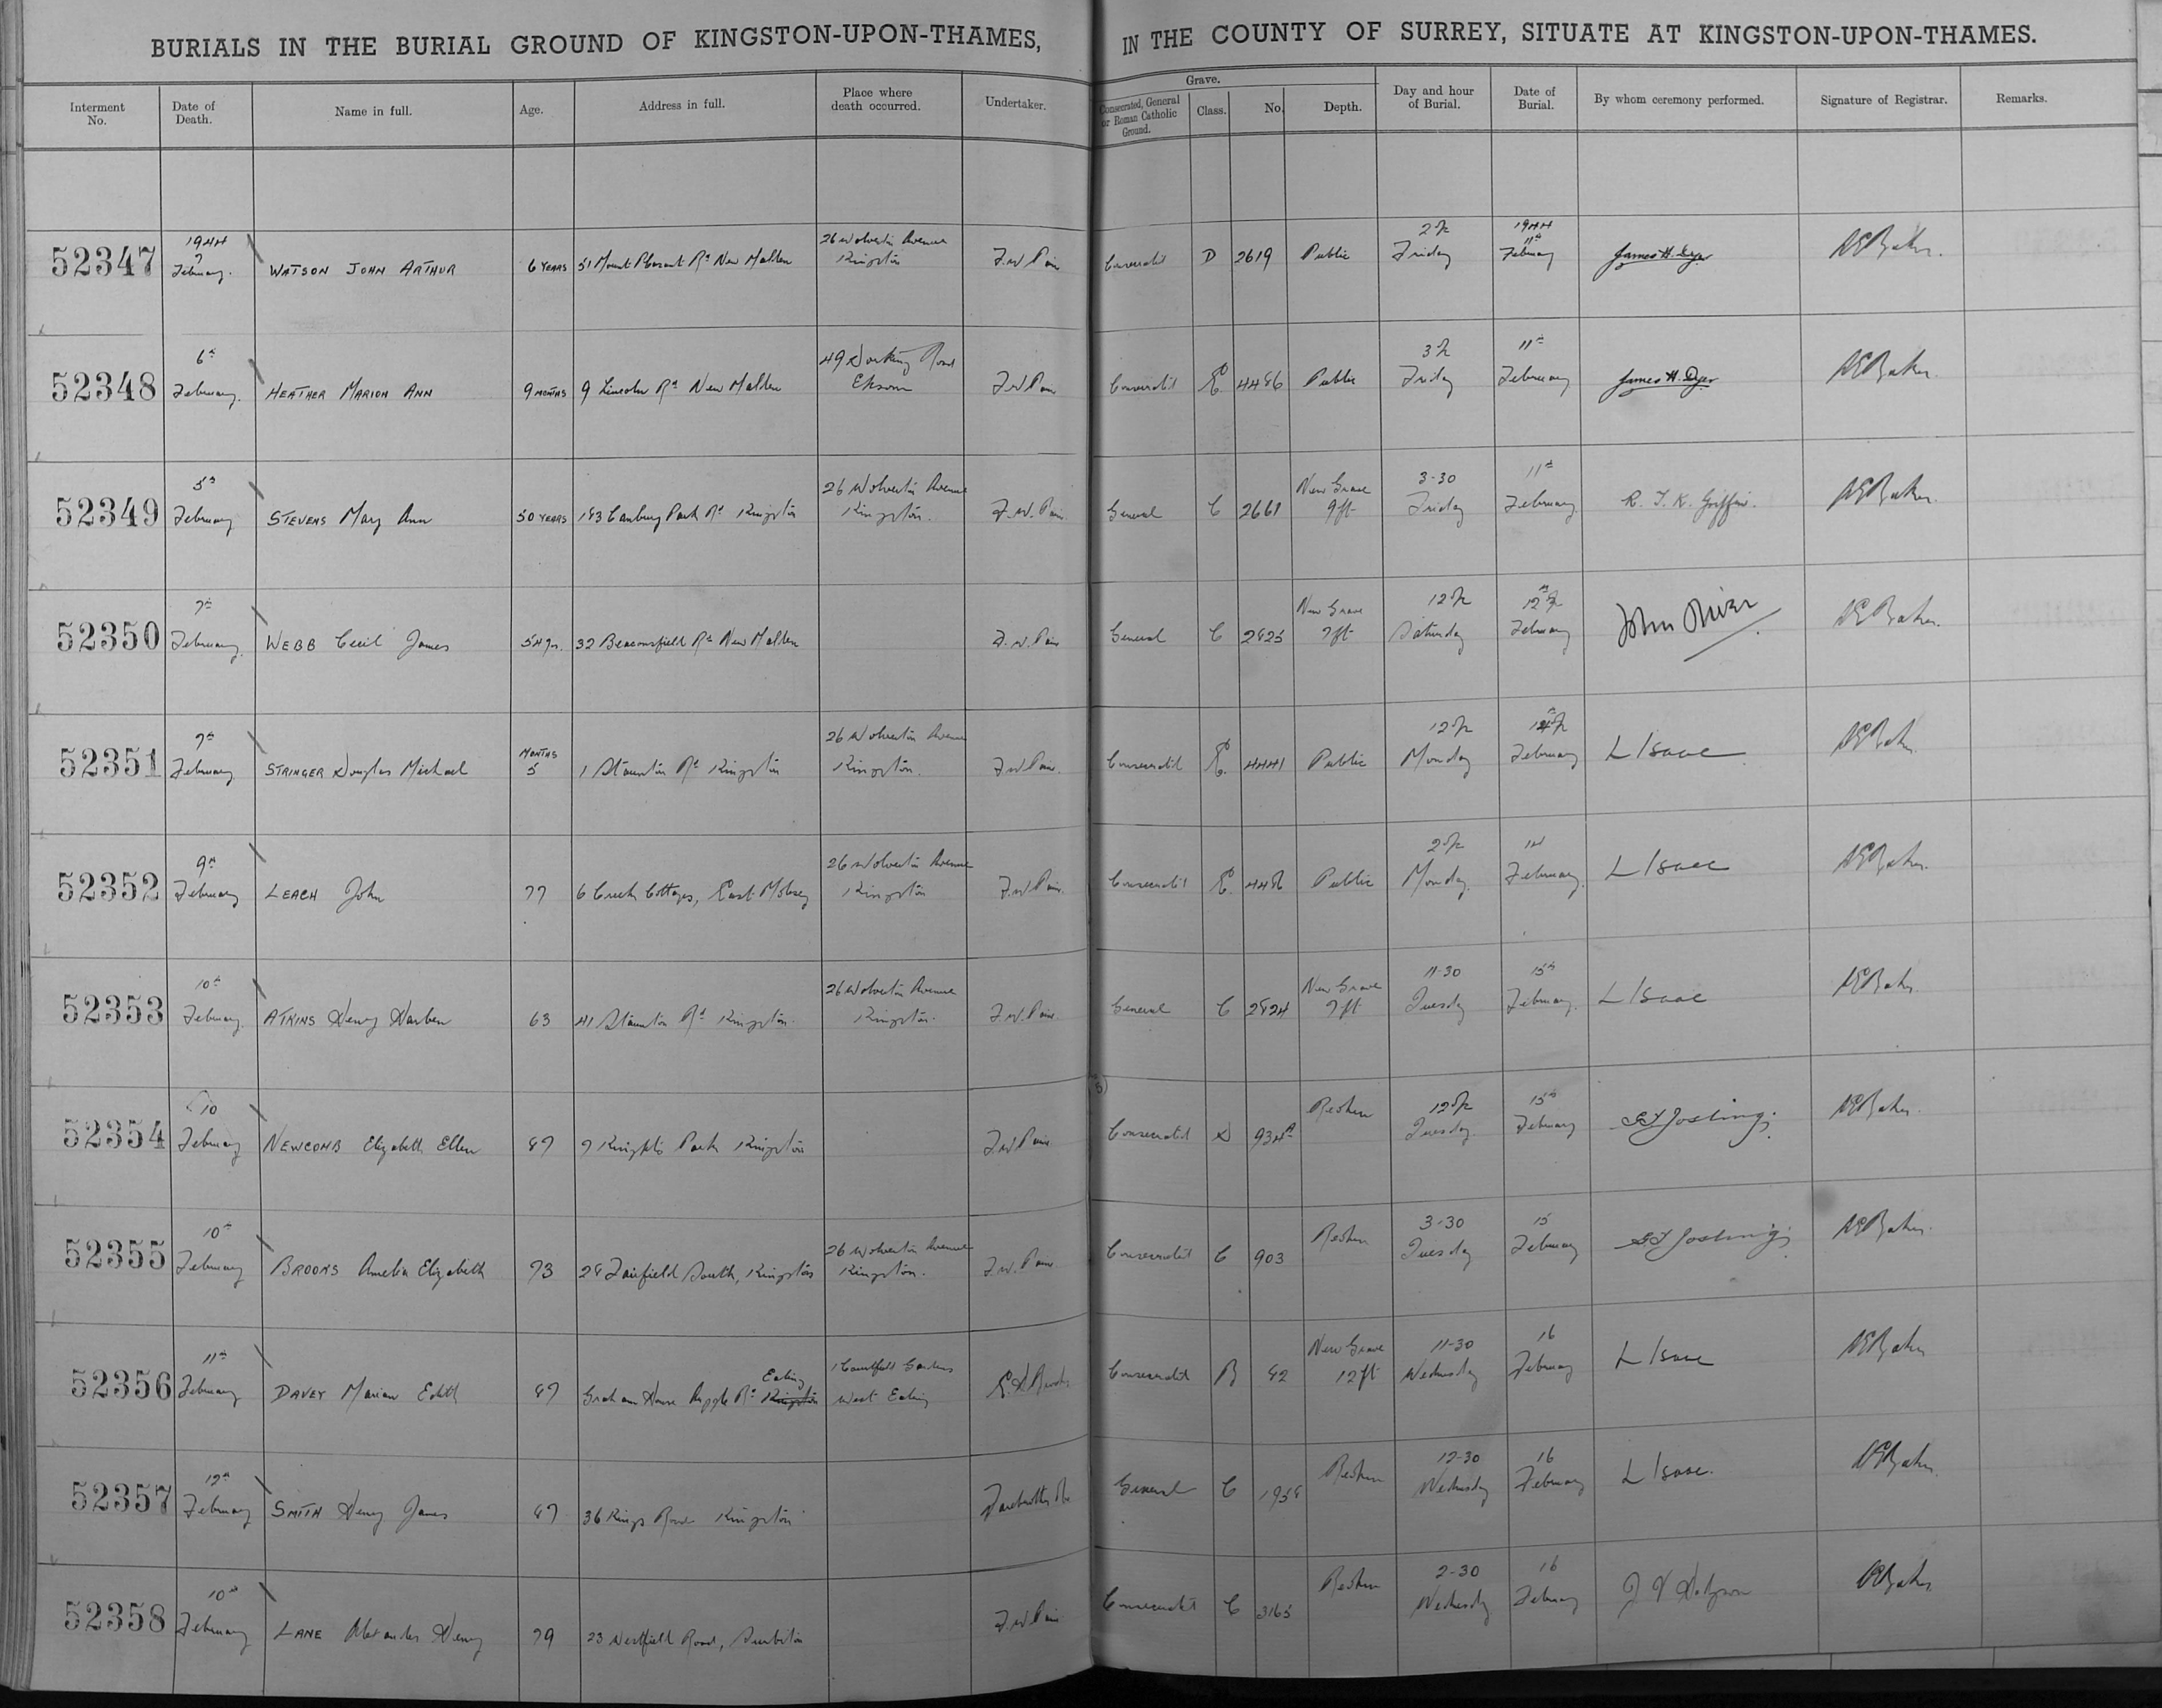 BURIALS IN THE BURIAL GROUND OF KINGSTON-UPON-THAMES, IN THE COUNTY OF SURREY, SITUATE AT KINGSTON-UPON-THAMES.
Grave.
Interment No. Date of Death. Name in full. Age. Address in full. Place where death occurred. Undertaker. Consecrated, General or Roman Catholic Ground. Class. No. Depth. Day and hour of Burial. Date of Burial. By whom ceremony performed. Signature of Registrar. Remarks.
52347 1944 7 February. WATSON JOHN ARTHUR 6 YEARS 51 Mount Pleasant Rd New Malden 26 Wolverton Avenue Kingston F.W. Paine Consecrated D 2619 Public 2 Friday 1944 11th February James H. Dyer
52348 6th February. HEATHER MARION ANN 9 MONTHS 9 Lincoln Rd New Malden 49 Dorking Road Epsom F.W. Paine Consecrated E. 4486 Public 3 Friday 11th February James H. Dyer
52349 5th February STEVENS Mary Ann 50 YEARS 183 Canbury Park Rd Kingston 26 Wolverton Avenue Kingston. F.W. Paine General C 2661 New Grave 9ft 3-30 Friday 11th February R. T. K. Griffin.
52350 7th February. WEBB Cecil James 54 yrs. 32 Beaconsfield Rd New Malden F.W. Paine General C 2825 New Grave 7ft 12 Saturday 12th February
52351 7th February STRINGER Douglas Michael MONTHS 5 1 Staunton Rd Kingston 26 Wolverton Avenue Kingston. F.W. Paine. Consecrated E. 4441 Public 12 Monday February L Isaac
52352 9th February LEACH John 77 6 Creek Cottages, East Molesey 26 Wolverton Avenue Kingston F.W. Paine. Consecrated E. Public 2 Monday 14 February. L Isaac
52353 10th February. ATKINS Henry Harben 63 41 Staunton Rd Kingston 26 Wolverton Avenue Kingston. F.W. Paine General C 2824 New Grave 7ft 11-30 Tuesday 15th February. L Isaac
52354 10 February NEWCOMB Elizabeth Ellen 87 7 Knights Park Kingston F.W. Paine Consecrated D 934A Reopen 12 Tuesday 15th February
52355 10th February BROOKS Amelia Elizabeth 73 28 Fairfield South, Kingston 26 Wolverton Avenue Kingston. F.W. Paine Consecrated C 903 Reopen 3-30 Tuesday 15 February
52356 11th February DAVEY Marian Edith 87 Graham House Rd Kingston Ealing 1 Gardens West Ealing Consecrated B 82 New Grave 12ft 11-30 Wednesday 16 February L Isaac
52357 12th February SMITH Henry James 87 36 Kings Road Kingston General C 1958 Reopen 12-30 Wednesday 16 February L Isaac.
52358 10th February LANE Alexander Henry 79 23 Westfield Road, Surbiton F.W. Paine Consecrated C 3165 Reopen 2-30 Wednesday 16 February